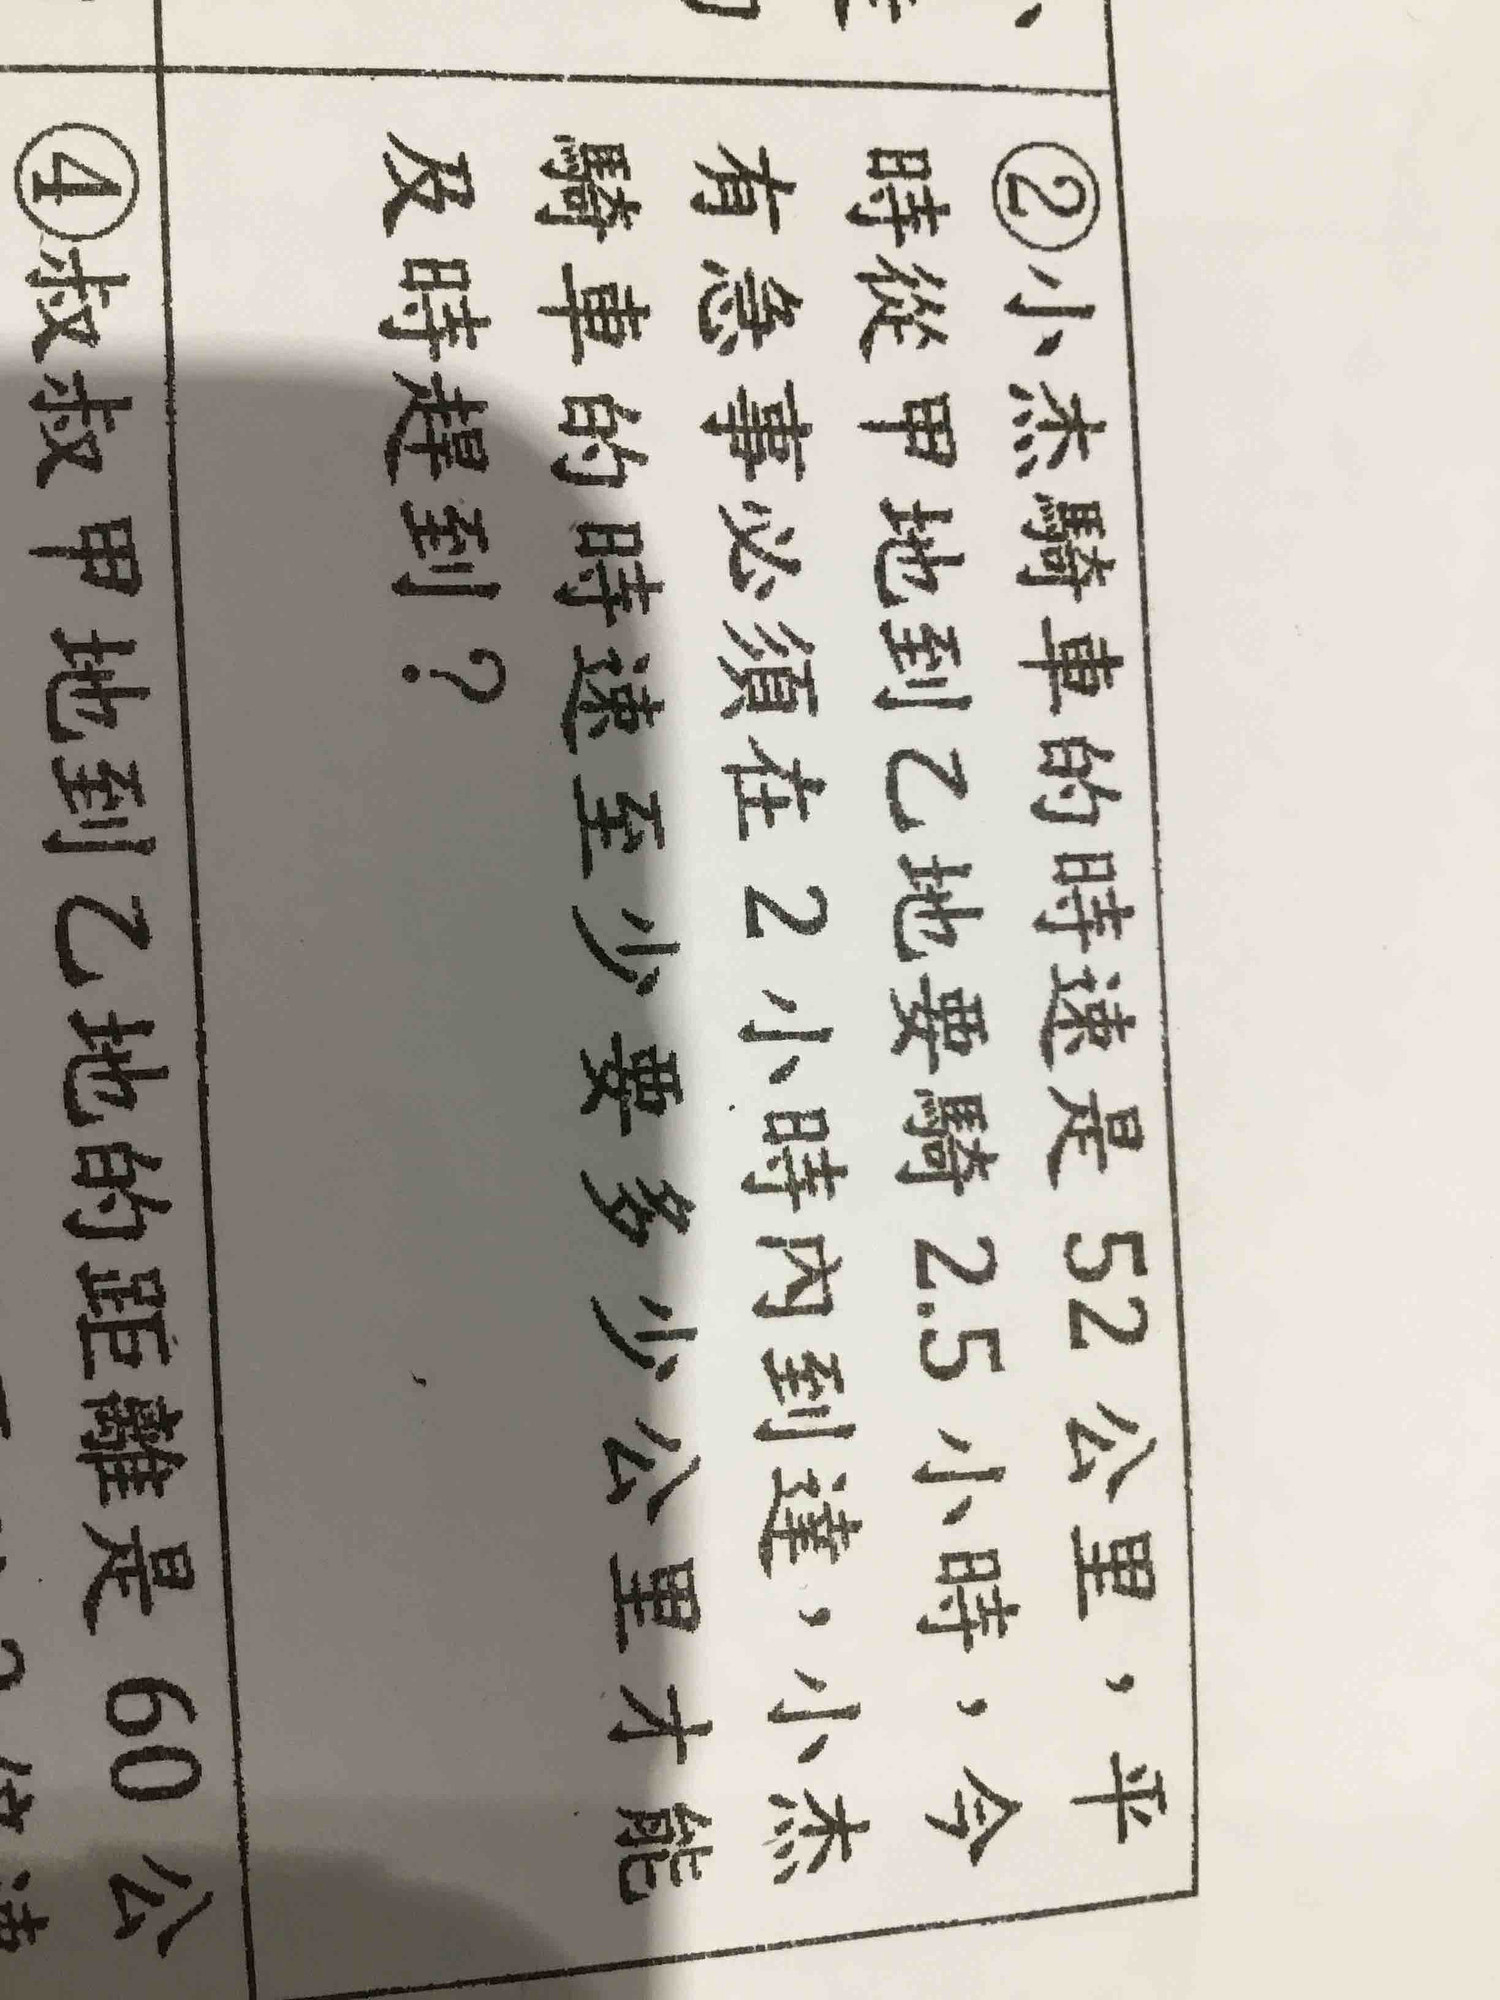 ②小杰騎車的時速是 52 公里，平
時從甲地到乙地要騎 2.5 小時，今
有急事必須在 2 小時內到達，小杰
騎車的時速至少要多少公里才能
及時趕到？
④叔叔甲地到乙地的距離是 60 公